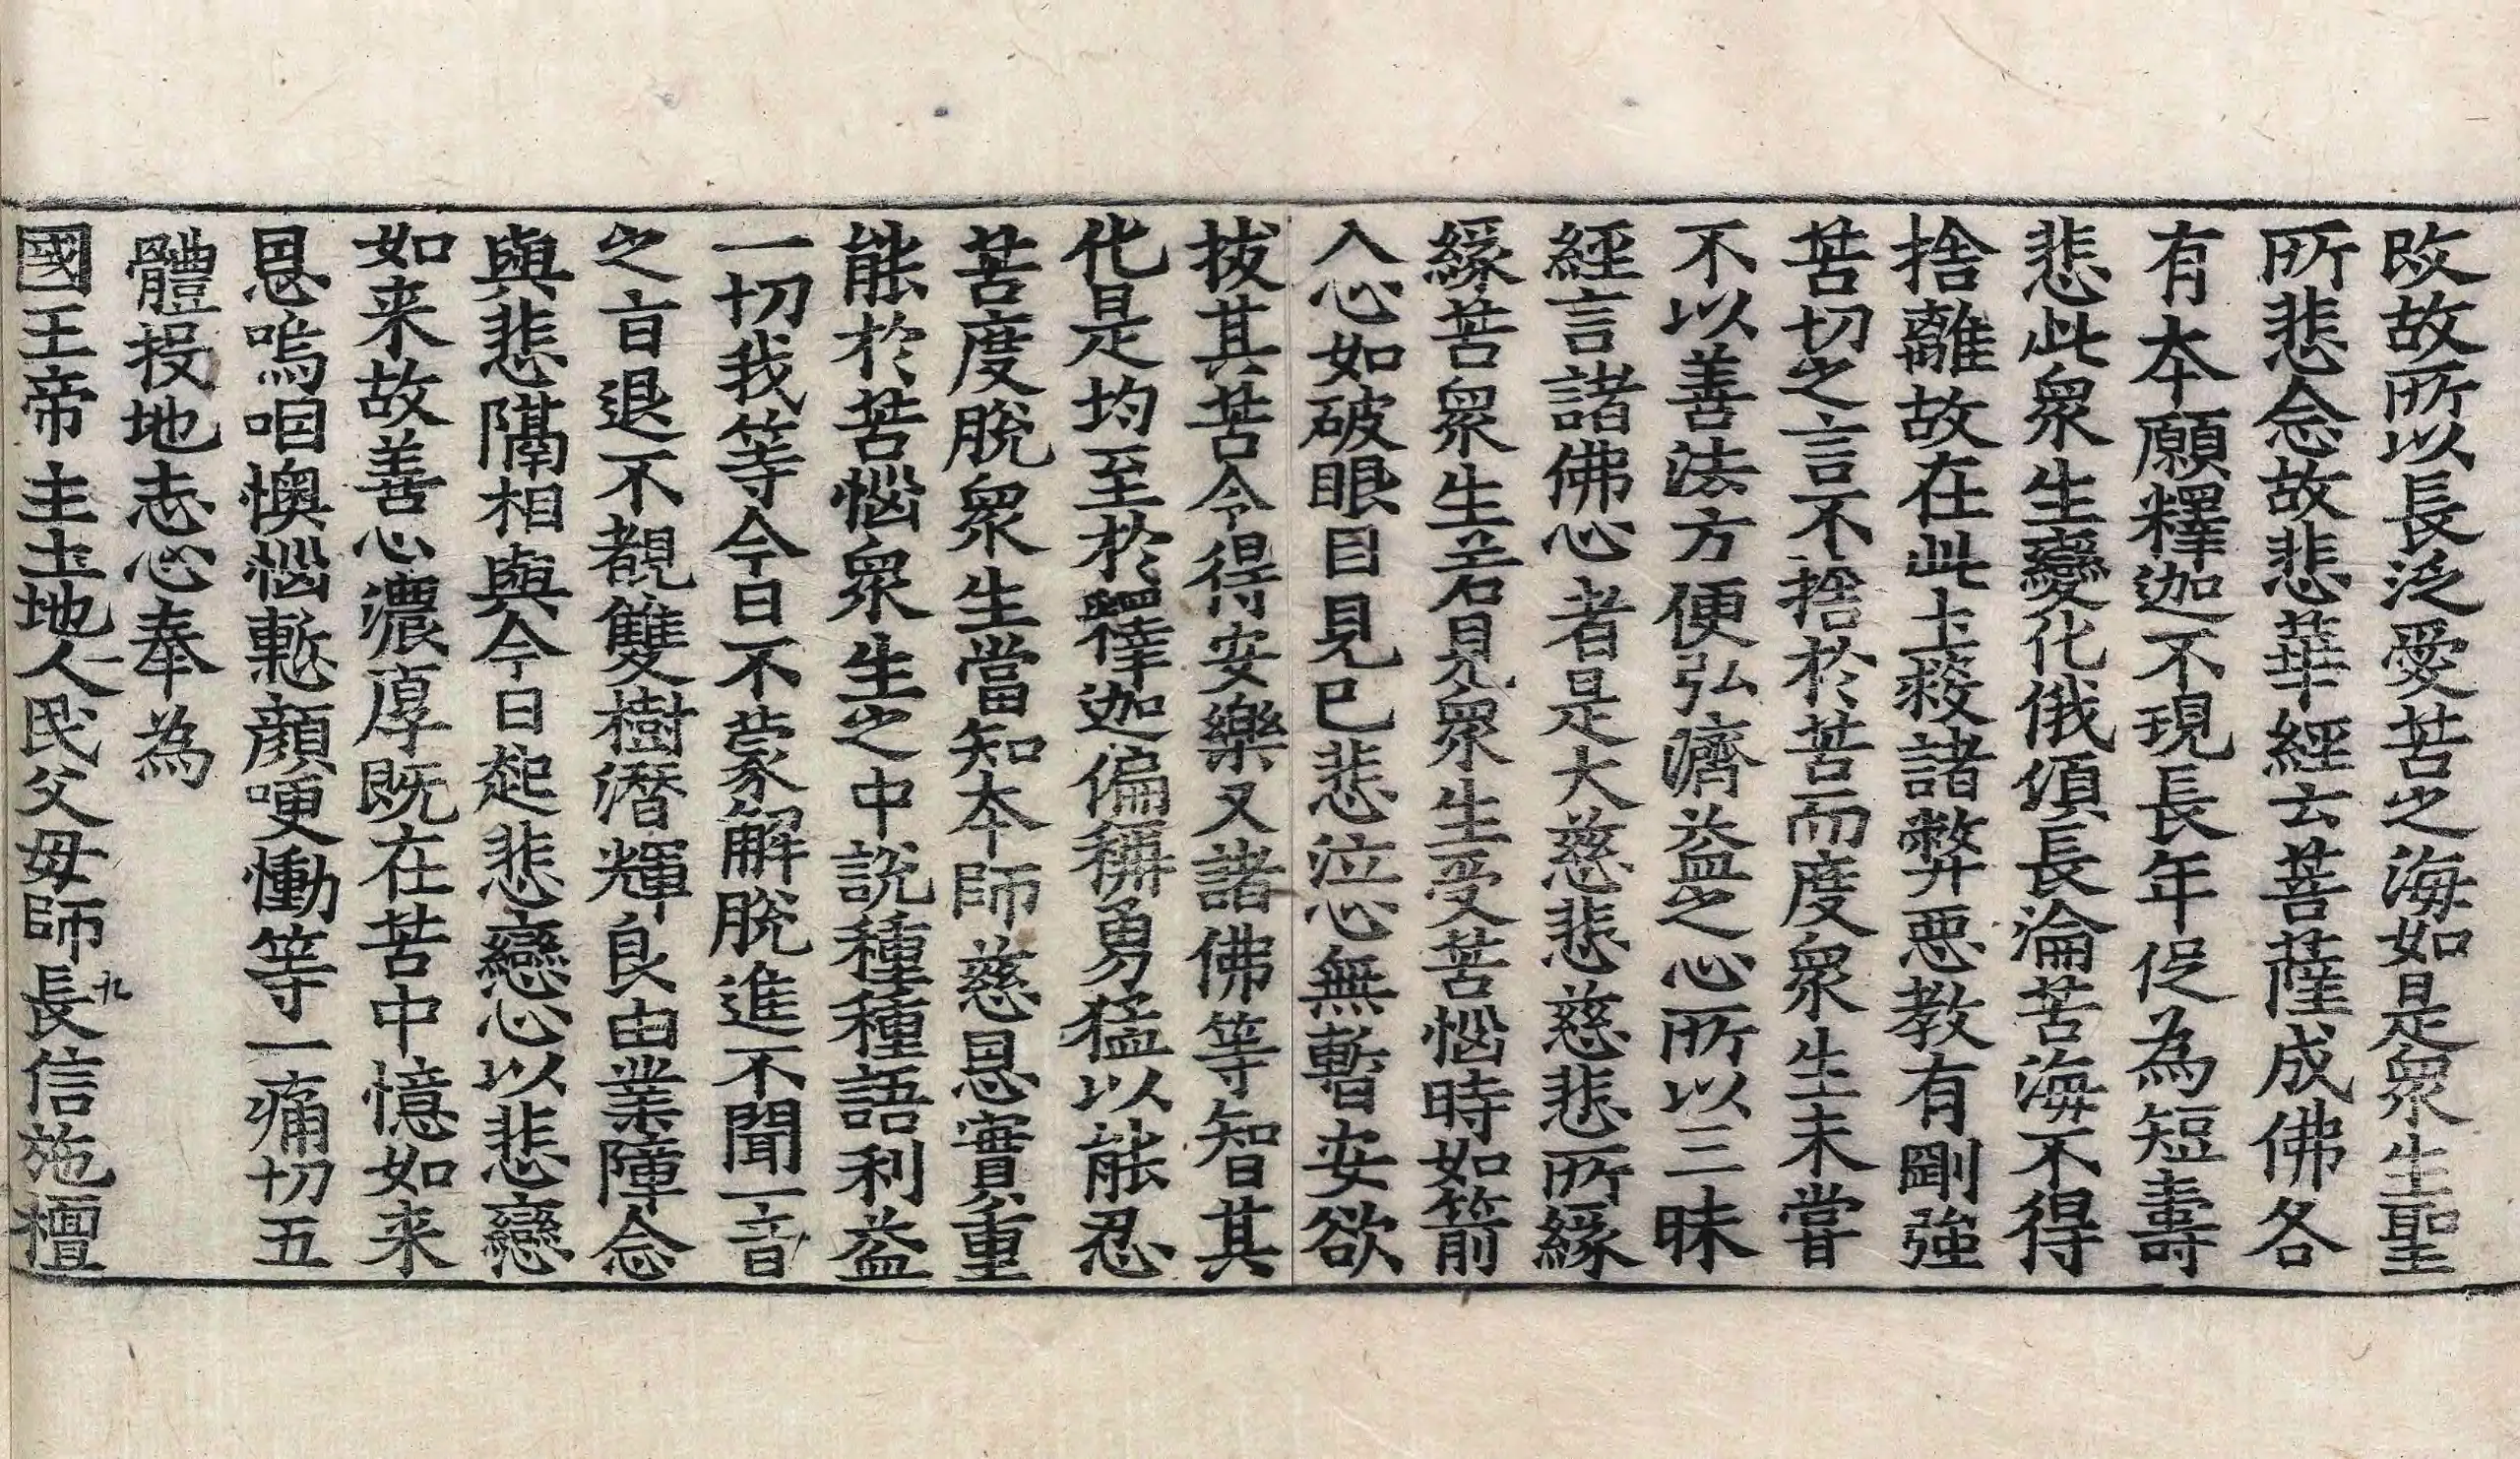 改故所以長泛愛苦之海如是衆生聖
所悲念故悲華經云菩薩成佛各
有本願釋迦不現長年促為短壽
悲此衆生變化俄頃長淪苦海不得
捨離故在此土救諸弊惡教有剛強
苦切之言不捨於苦而度衆生未甞
不以善法方便弘濟益之心所以三昧
經言諸佛心者是大慈悲慈悲所緣
緣苦衆生若見衆生受苦惱時如箭
入心如破眼目見已悲泣心無暫安欲
拔其苦令得安樂又諸佛等智其
化是均至於釋迦偏稱勇猛以能忍
苦度脫衆生當知本師慈恩實重
能於苦惱衆生之中說種種語利益
一切我等今日不蒙解脫進不聞一音
之旨退不覩雙樹潛輝良由業障念
與悲隔相與今日起悲戀心以悲戀
如来故善心濃厚既在苦中憶如来
恩嗚咽懊惱慙顏哽慟等一痛切五
體投地志心奉為
國王帝主土地人民父母師長信施檀
九